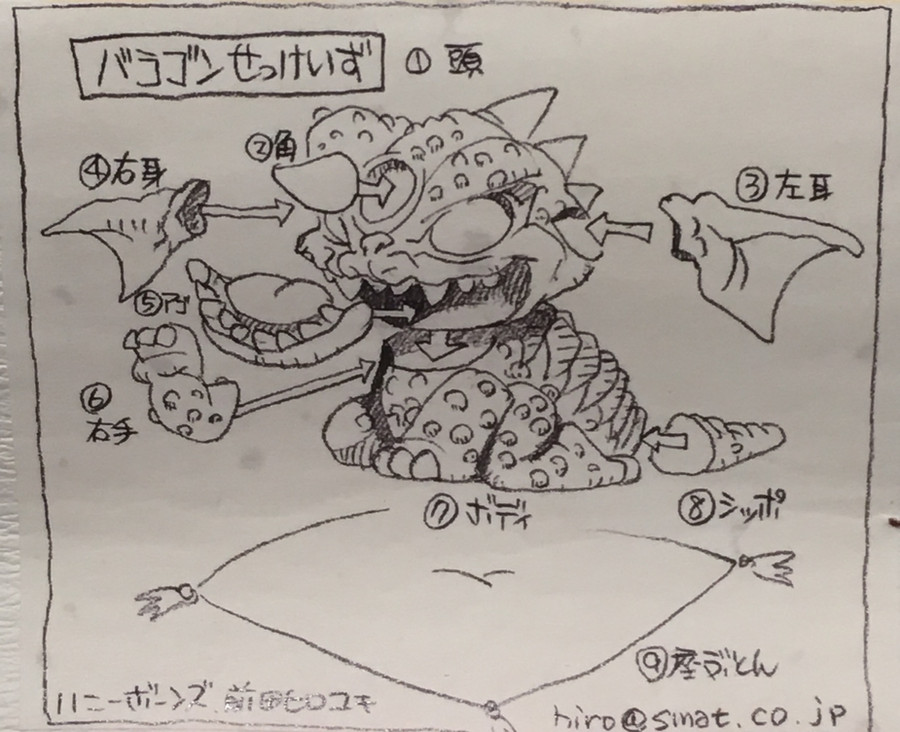 バラゴンせっけいず
①頭
②角
④右耳
③左耳
⑤アゴ
⑥
右手
⑦ボディ
⑧シッポ
⑨座ぶとん
ハニーボーンズ 前田ヒロユキ
hiro@smat.co.jp